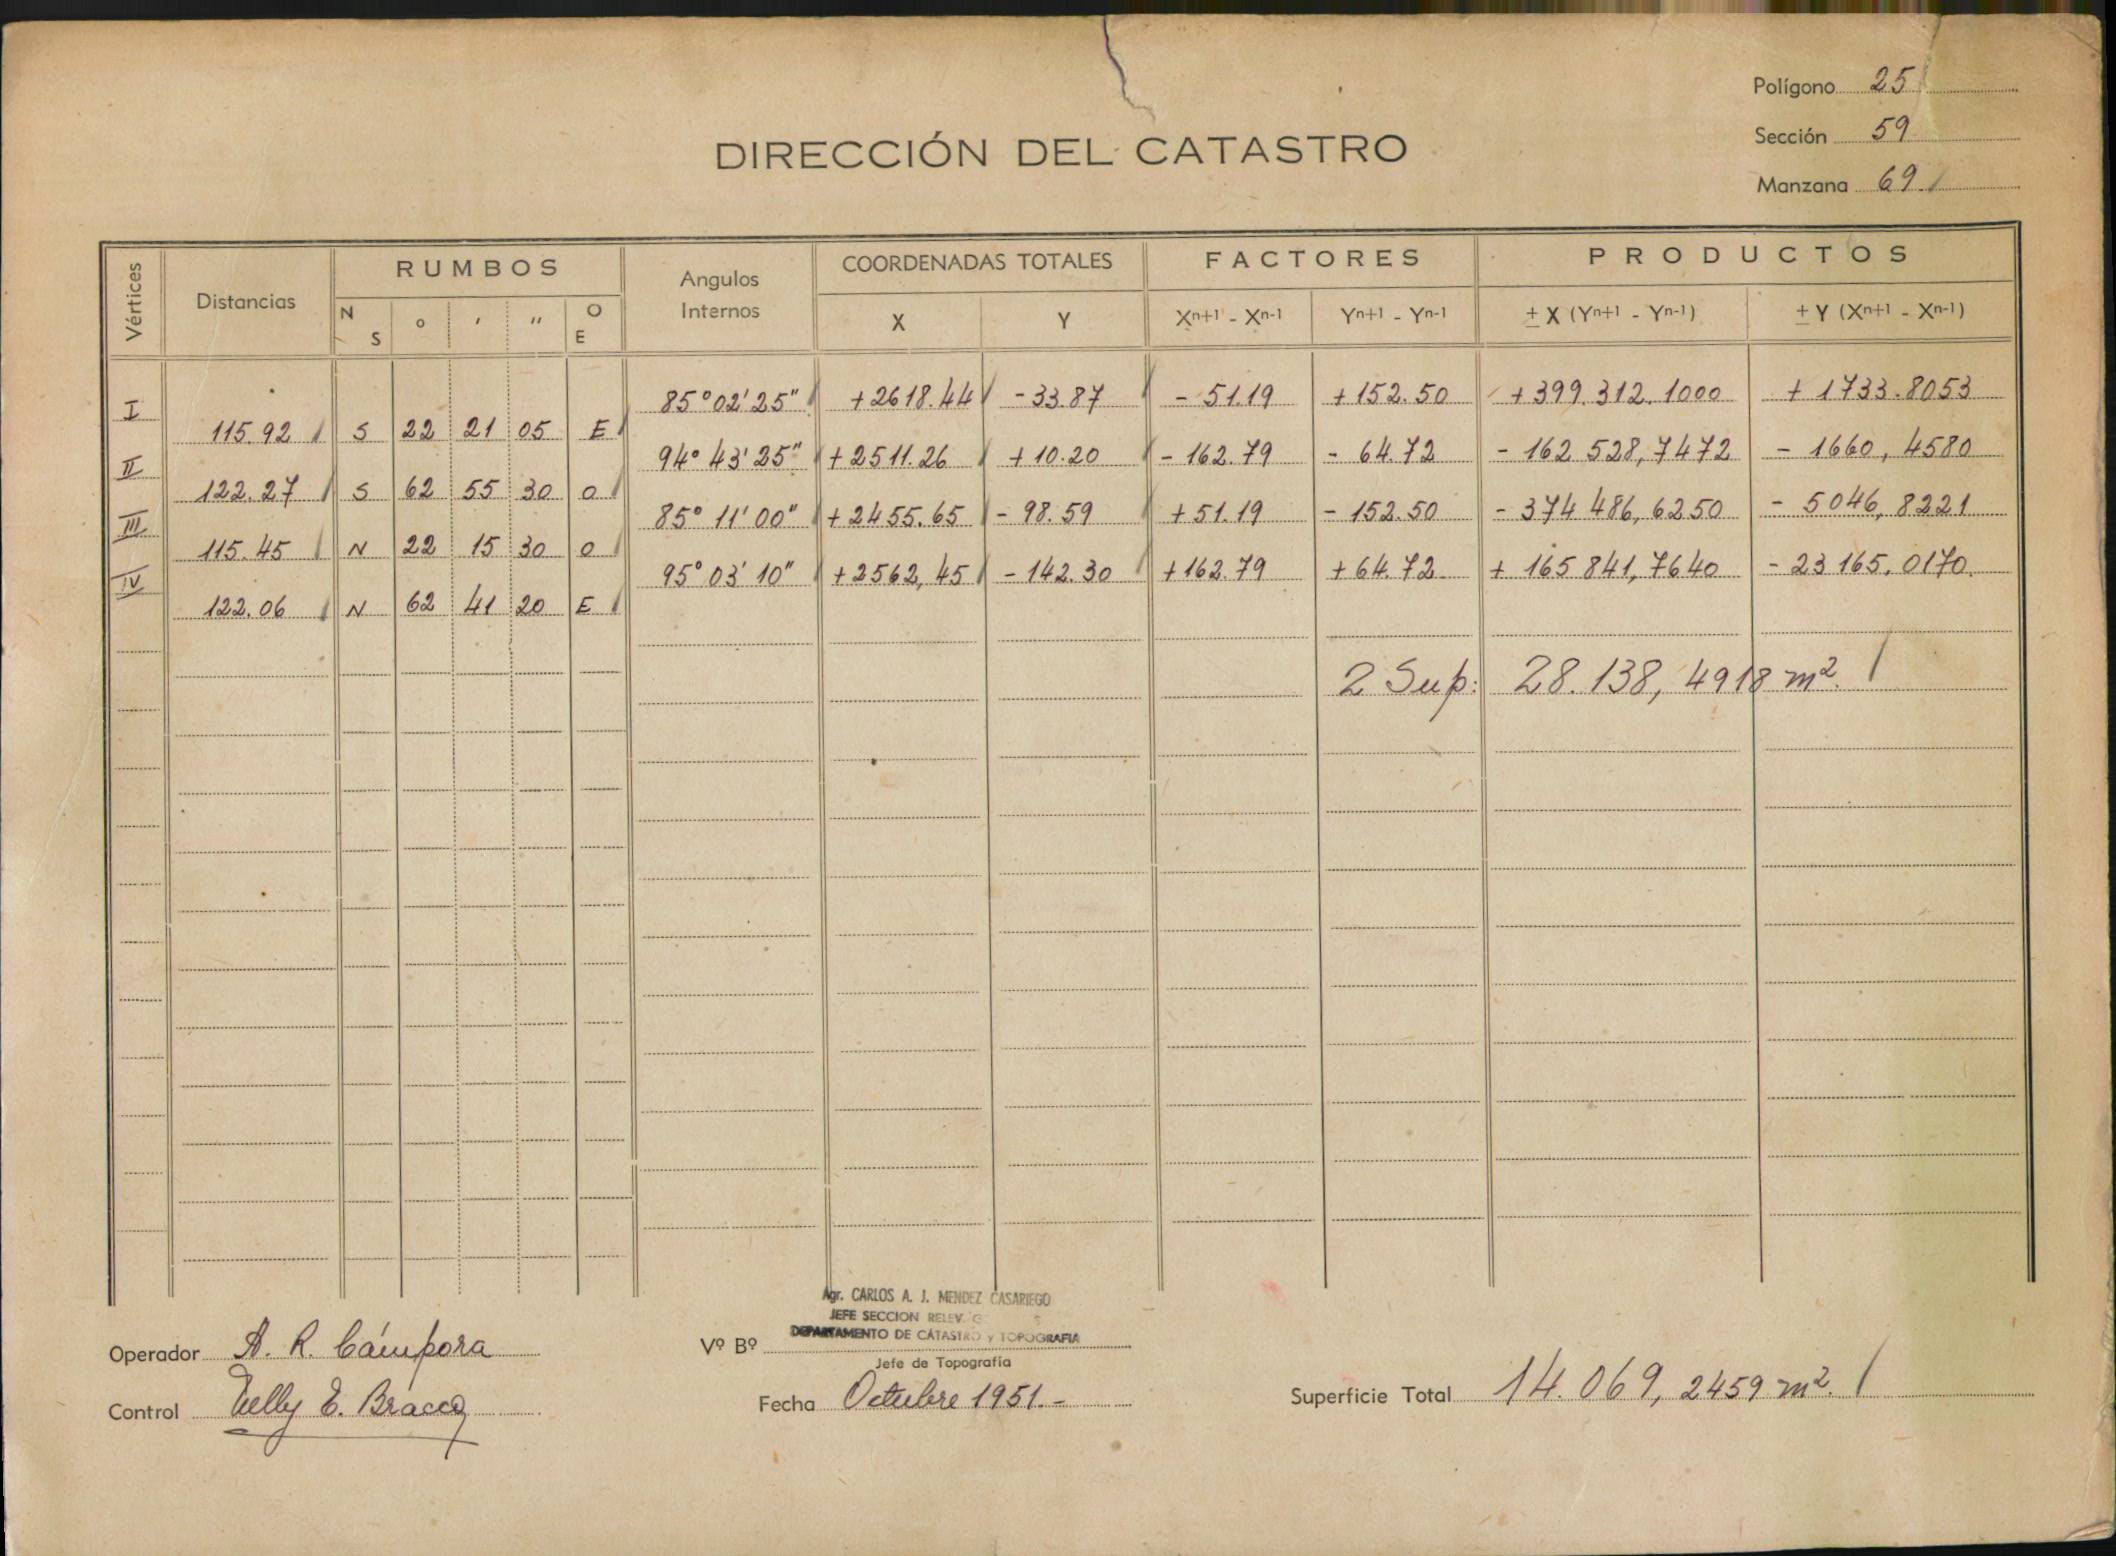 Polígono 25
Sección 59
Manzana 69
DIRECCIÓN DEL CATASTRO
Vértices Distancias RUMBOS Angulos Internos COORDENADAS TOTALES FACTORES PRODUCTOS
N S ° ' '' O E X Y Xn+1 - Xn-1 Yn+1 - Yn-1 ± X (Yn+1 - Yn-1) ± Y (Xn+1 - Xn-1)
I 85° 02' 25" +2618.44 -33.87 - 51.19 +152.50 +399.312.1000 + 1733.8053
115.92 S 22 21 05 E
II 94° 43' 25" +2511.26 +10.20 - 162.79 - 64.72 - 162 528,7472 - 1660,4580
122.27 S 62 55 30 O
III 85° 11' 00" +2455.65 - 98.59 +51.19 - 152.50 - 374 486,6250 - 5046,8221
115.45 N 22 15 30 O
IV 95° 03' 10" +2562,45 - 142.30 +162.79 +64.72 + 165 841,7640 - 23 165.0170
122.06 N 62 41 20 E
2 Sup: 28.138, 4918 m².
Agr. CARLOS A. J. MENDEZ CASARIEGO
JEFE SECCION RELEV
DEPARTAMENTO DE CATASTRO y TOPOGRAFIA
Operador A. R. Cámpora
Vº Bº
Jefe de Topografía
Control Telly E. Bracco
Fecha Octubre 1951.-
Superficie Total 14.069, 2459 m².